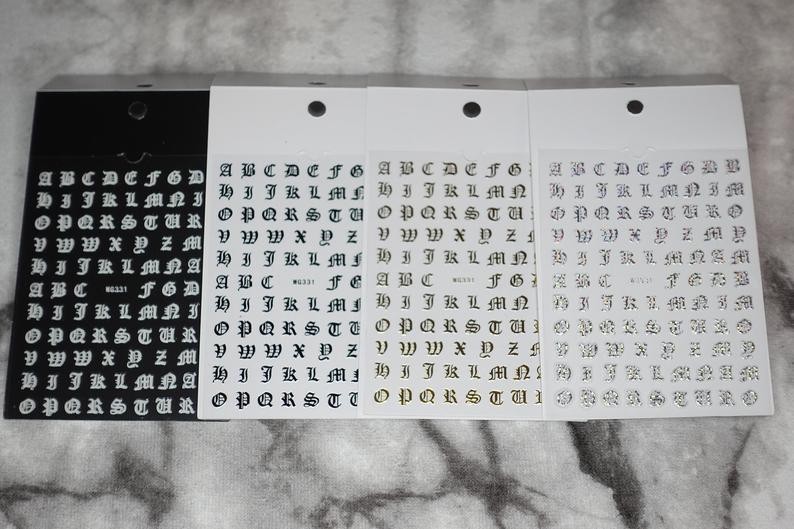 A B C D E F G D
H I J K L M N I
O P Q R S T U R
V W W X Y Z M
H I J K L M N A
A B C WG331 F G D
H I J K L M N I
O P Q R S T U R
V W W X Y Z M
H I J K L M N A
O P Q R S T U R
A B C D E F G
H I J K L M N
O P Q R S T U
V W W X Y Z
H I J K L M N
A B C WG331 F G
H I J K L M N
O P Q R S T U
V W W X Y Z
H I J K L M N
O P Q R S T U
A B C D E F G
H I J K L M N
O P Q R S T U
V W W X Y Z
H I J K L M N
A B C WG331 F G
H I J K L M N
O P Q R S T U
V W W X Y Z
H I J K L M N
O P Q R S T U
A B C D E F G D B
H I J K L M N I M
O P Q R S T U R O
V W W X Y Z M Y
H I J K L M N A M
A B C WG331 F G D B
H I J K L M N I M
O P Q R S T U R O
V W W X Y Z M Y
H I J K L M N A M
O P Q R S T U R O